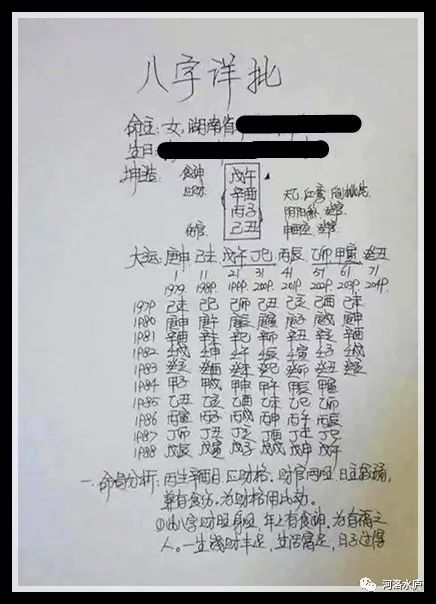 八字详批
命主:女,湖南省
生日:
坤造: 食神 戊午
正财 辛酉 天乙 红鸾 
丙子 阴阳煞 
伤官 己丑 
大运:庚申 己未 戊午 丁巳 丙辰 乙卯 甲寅 癸丑
1 11 21 31 41 51 61 71
1979. 1989. 1999. 2009. 2019. 2029. 2039. 2049.
1979 己未 己巳 己卯 己丑 己亥 己酉 己未
1980 庚申 庚午 庚辰 庚寅 庚子 庚戌 庚申
1981 辛酉 辛未 辛巳 辛卯 辛丑 辛亥 辛酉
1982 壬戌 壬申 壬午 壬辰 壬寅 壬子 壬戌
1983 癸亥 癸酉 癸未 癸巳 癸卯 癸丑 癸亥
1984 甲子 甲戌 甲申 甲午 甲辰 甲寅
1985 乙丑 乙亥 乙酉 乙未 乙巳 乙卯
1986 丙寅 丙子 丙戌 丙申 丙午 丙辰
1987 丁卯 丁丑 丁亥 丁酉 丁未 丁巳
1988 戊辰 戊寅 戊子 戊戌 戊申 戊午
一.命局分析:丙生辛酉月 正财格.财官两旺 日主
喜有食伤.为财格用
①此八字财旺身旺 年上有食神.为有福之
人.一生钱财丰足,生活富足,日子过得
河洛水庐